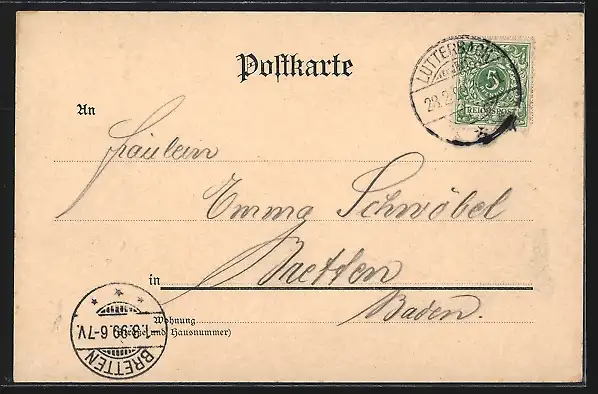 Postkarte
LUTTERBACH
5
REICHSPOST
An
Fräulein
Emma Schwöbel
in Bretten
Baden.
Wohnung
(Straße und Hausnummer)
1.8.99.6-7V.
BRETTEN